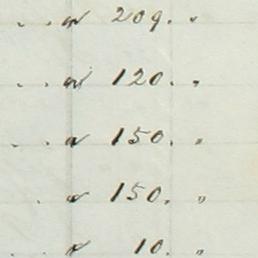 . . a 209. "
. . a 120. "
. . a 150. "
. . a 150. "
. . a 10. "